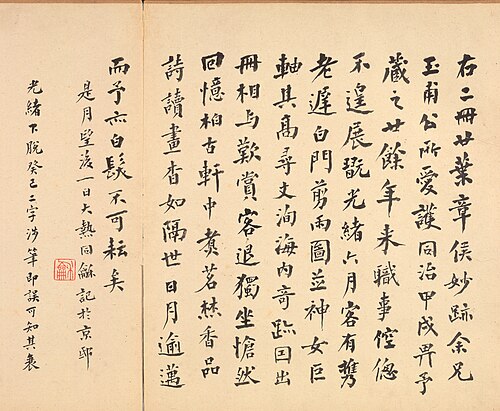 右二冊廿葉章侯妙跡余兄
玉甫公所愛護同治甲戌畀予
藏之廿餘年來職事倥傯
不遑展翫光緒六月客有攜
老遲白門剪雨圖並神女巨
軸其高尋丈洵海内奇跡因出
冊相与歎賞客退獨坐愴然
回憶柏古軒中煑茗焚香品
詩讀畫杳如隔世日月逾邁
而予亦白鬚不可耘矣
是月望後一日大熱同龢記於京邸
光緒下脫癸巳二字涉筆即誤可知其衰